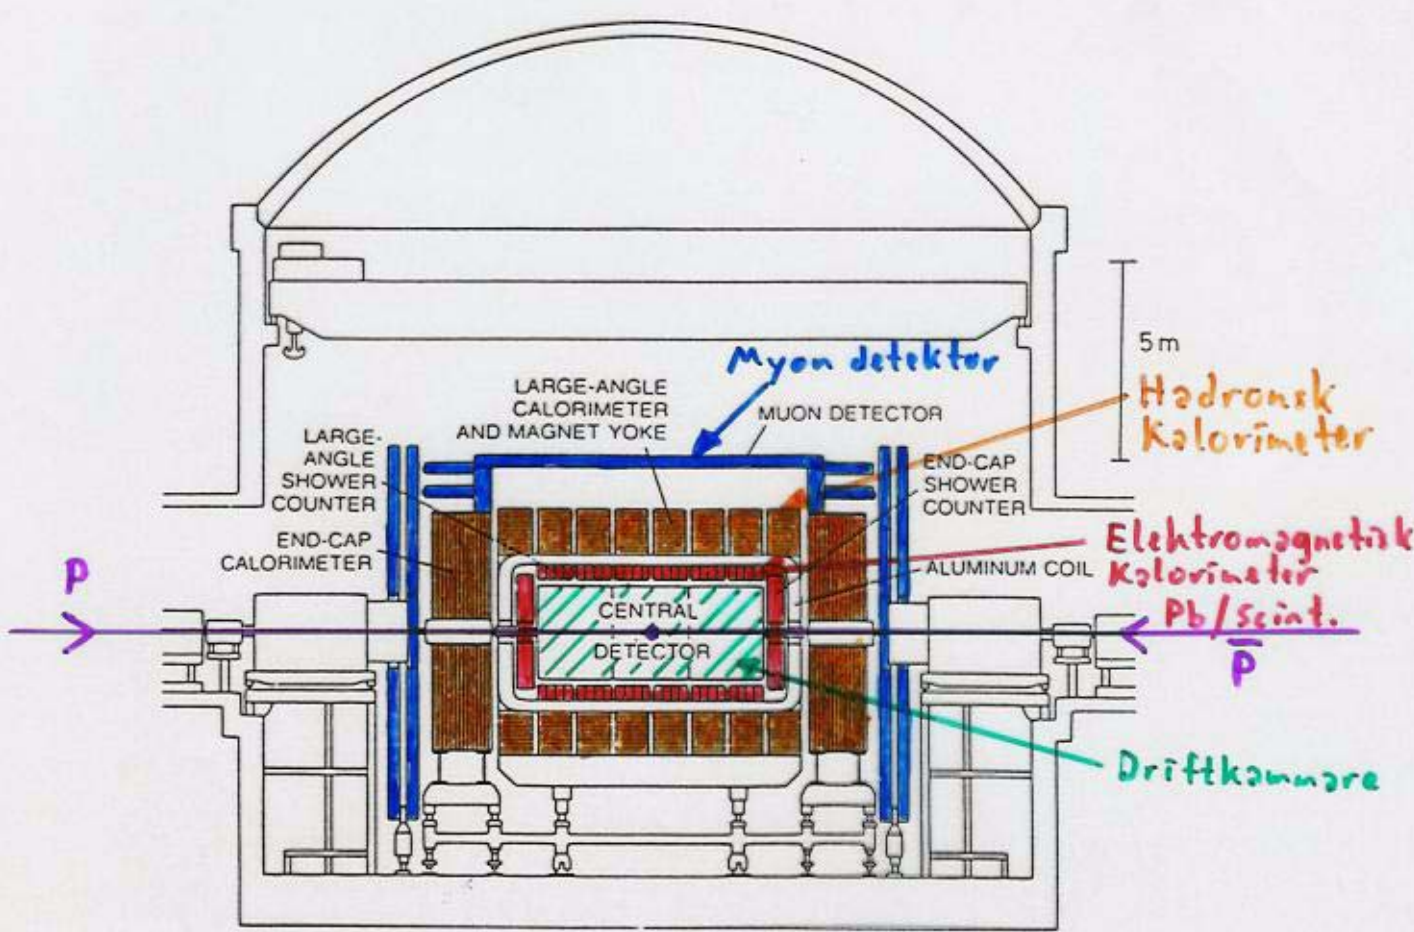 5 m
Myon detektor
LARGE-ANGLE
CALORIMETER
AND MAGNET YOKE
MUON DETECTOR
Hadronsk
Kalorimeter
LARGE-
ANGLE
SHOWER
COUNTER
END-CAP
SHOWER
COUNTER
END-CAP
CALORIMETER
ALUMINUM COIL
Elektromagnetisk
Kalorimeter
Pb/Scint.
P
P̅
CENTRAL
DETECTOR
Driftkammare